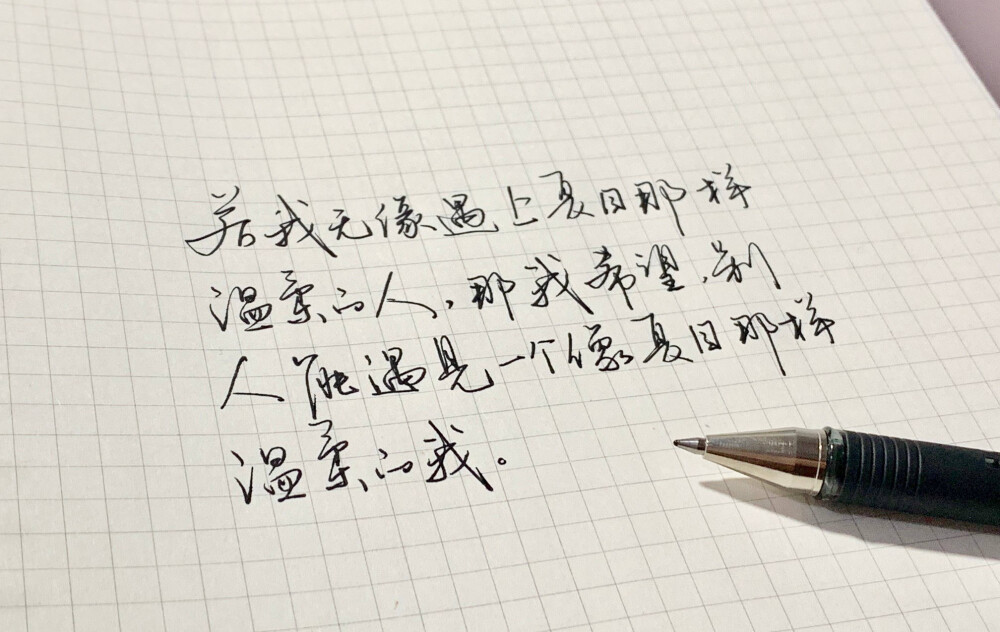 若我无缘遇上夏目那样
温柔的人，那我希望，别
人能遇见一个像夏目那样
温柔的我。